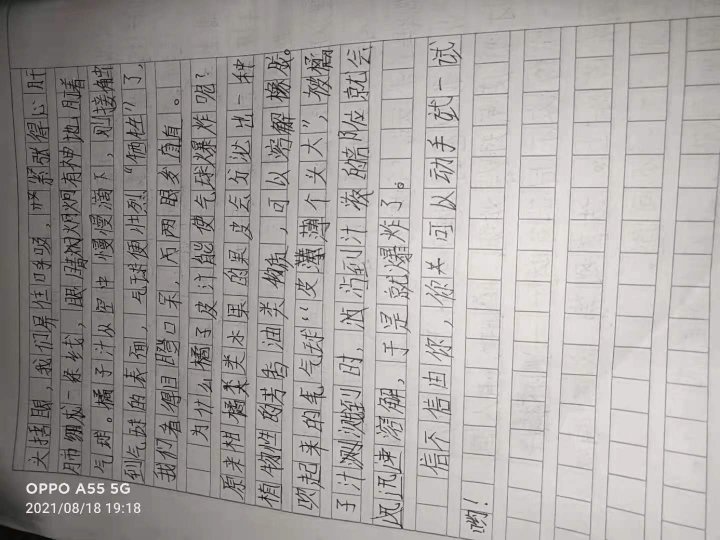 大括眼，我们屏住呼吸，紧张得心脏
绷成一条线，眼睛炯炯有神地盯着
气球。橘子汁从空中慢慢滴下，刚接触
到气球的表面，气球便壮烈“牺牲”了，
我们看得目瞪口呆，而两眼发直。
为什么橘子皮汁能使气球爆炸呢？
原来柑橘类水果的果皮会分泌出一种
植物性的芳香油类物质，可以溶解橡胶。
吹起来的气气球“皮薄个头大”，被橘
子汁溅到时，滴到汁液的部位就会
迅速溶解，于是就爆炸了。
信不信由你，你关可以动手试一试
哟！
OPPO A55 5G
2021/08/18 19:18